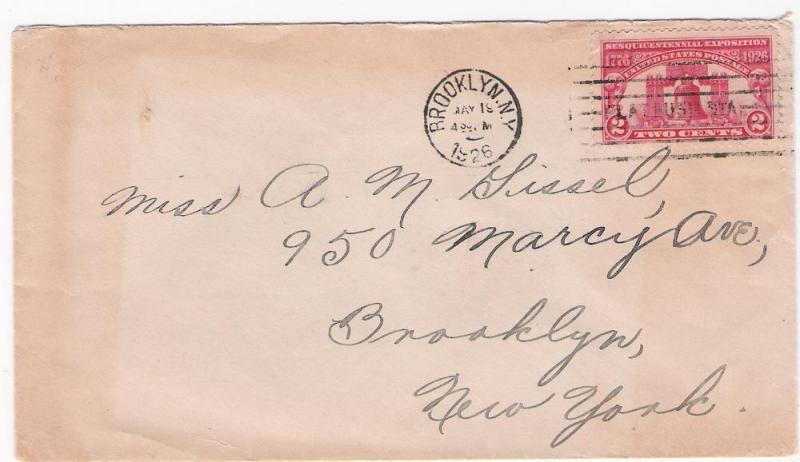 SESQUICENTENNIAL EXPOSITION
1776 UNITED STATES POSTAGE 1926
BROOKLYN, N.Y.
MAY 18
4 PM
1926
FLATBUSH STA.
2 TWO CENTS 2
Miss A. M. Sissel,
950 Marcy Ave.,
Brooklyn,
New York.